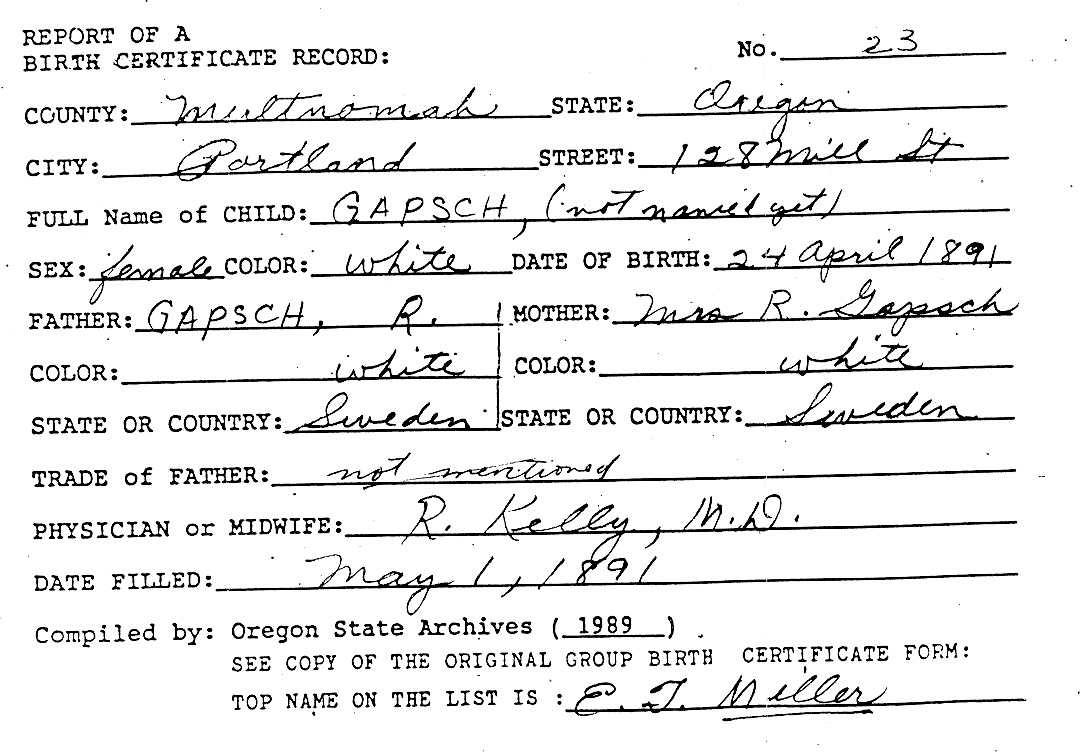 REPORT OF A
BIRTH CERTIFICATE RECORD: No. 23
COUNTY: Multnomah STATE: Oregon
CITY: Portland STREET: 128 Mill St
FULL Name of CHILD: GAPSCH, (not named yet)
SEX: female COLOR: white DATE OF BIRTH: 24 April 1891
FATHER: GAPSCH, R. MOTHER: Mrs R. Gapsch
COLOR: white COLOR: white
STATE OR COUNTRY: Sweden STATE OR COUNTRY: Sweden
TRADE of FATHER: not mentioned
PHYSICIAN or MIDWIFE: R. Kelly, M.D.
DATE FILLED: May 1, 1891
Compiled by: Oregon State Archives ( 1989 ) .
SEE COPY OF THE ORIGINAL GROUP BIRTH CERTIFICATE FORM:
TOP NAME ON THE LIST IS : E. T. Miller